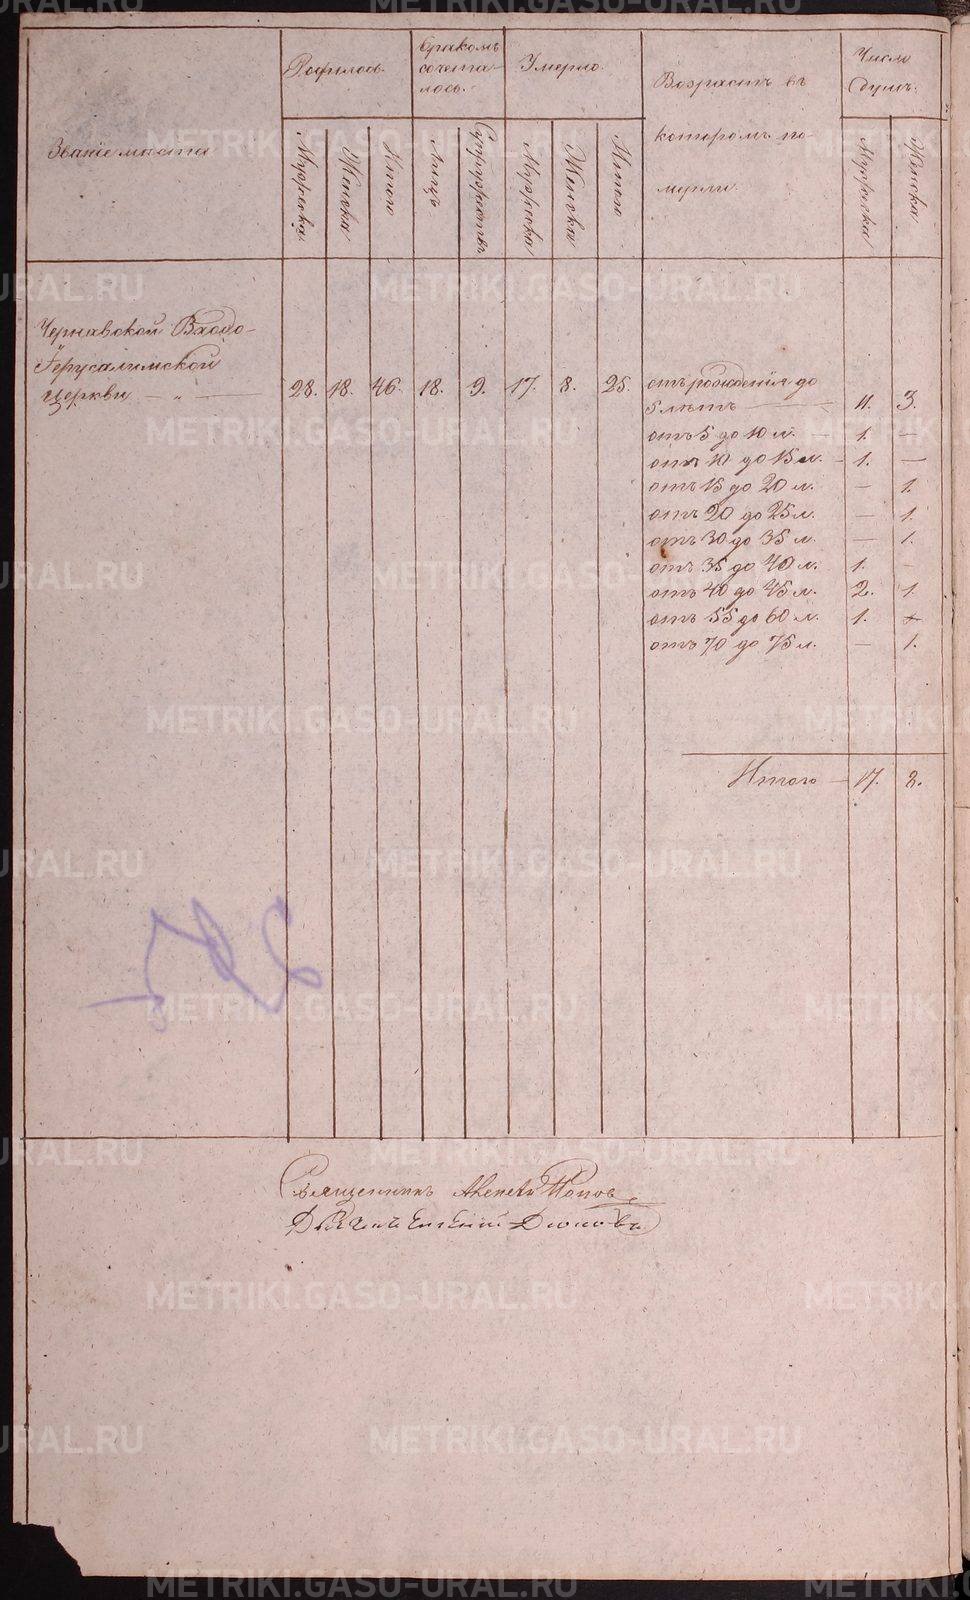 Званіе места
Родилось.
Бракомъ
сочета-
лось.
Умерло.
Возрастъ въ
которомъ по-
мерли.
Число
Душъ.
Мужеска
Женска
Итого
Лицъ.
Супружествъ
Мужеска
Женска
Итого
Мужеска
Женска
Чернавской Входо-
Іерусалимской
Церкви — „ — 28. 18. 46. 18. 9. 17. 8. 25.
отъ рожденія до
5 летъ — 11. 3.
отъ 5 до 10 л. — 1. —
отъ 10 до 15 л. — 1. —
отъ 15 до 20 л. — 1.
отъ 20 до 25 л. — 1.
отъ 30 до 35 л. — 1.
отъ 35 до 40 л. 1. —
отъ 40 до 45 л. 2. 1.
отъ 55 до 60 л. 1. —
отъ 70 до 75 л. — 1.
Итого — 17. 8.
Священникъ Попов
METRIKI.GASO-URAL.RU